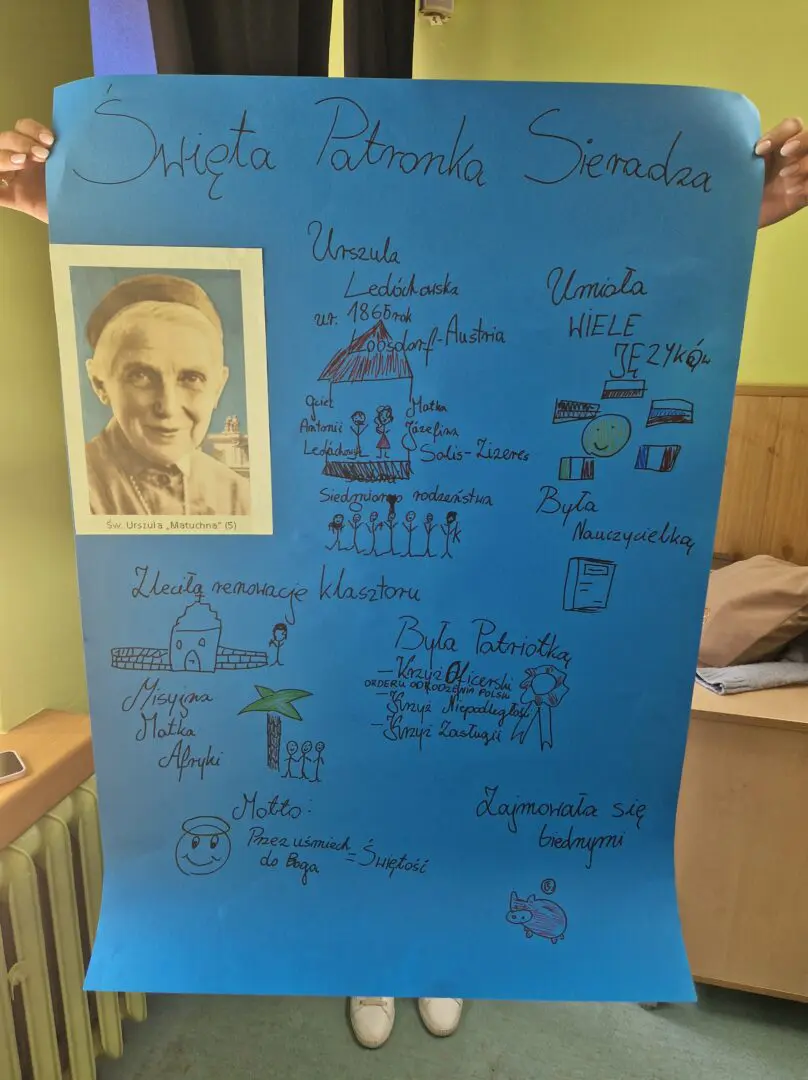 Święta Patronka Sieradza
Urszula
Ledóchowska
ur. 1865 rok
Loosdorf-Austria
Ojciec
Antonii
Ledóchowski
Matka
Józefina
Salis-Zizeres
Siedmioro rodzeństwa
Umiała
WIELE
JĘZYKÓW
Była
Nauczycielką
Św. Urszula „Matuchna" (5)
Zleciła renowacje klasztoru
Była Patriotką
- Krzyż Oficerski
ORDERU ODRODZENIA POLSKI
- Krzyż Niepodległości
- Krzyż Zasługii
Misyjna
Matka
Afryki
Motto:
Przez uśmiech
do Boga = Świętość
Zajmowała się
biednymi